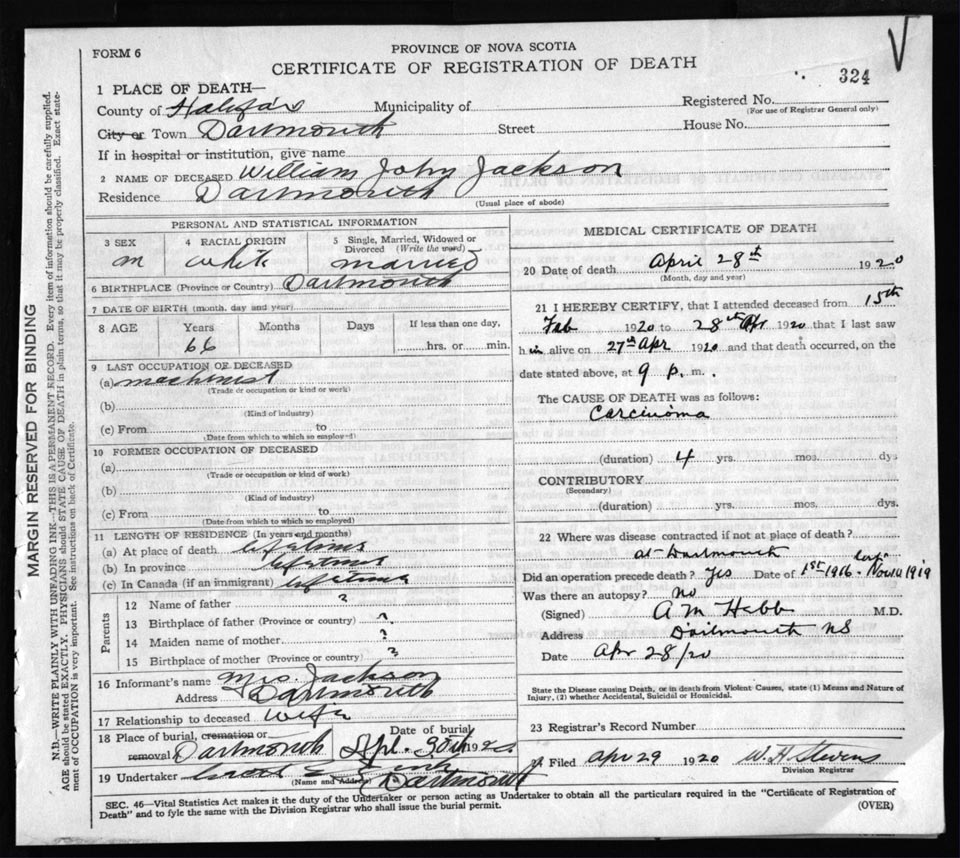 FORM 6
PROVINCE OF NOVA SCOTIA
CERTIFICATE OF REGISTRATION OF DEATH
324
1 PLACE OF DEATH—
County of Halifax Municipality of Registered No.
(For use of Registrar General only)
City or Town Dartmouth Street House No.
If in hospital or institution, give name
2 NAME OF DECEASED William John Jackson
Residence Dartmouth
(Usual place of abode)
PERSONAL AND STATISTICAL INFORMATION
3 SEX 4 RACIAL ORIGIN 5 Single, Married, Widowed or Divorced (Write the word)
m white married
6 BIRTHPLACE (Province or Country) Dartmouth
7 DATE OF BIRTH (month, day and year)
8 AGE Years Months Days If less than one day,
66 hrs. or min.
9 LAST OCCUPATION OF DECEASED
(a) machinist
(Trade or occupation or kind of work)
(b)
(Kind of industry)
(c) From to
(Date from which to which so employed)
10 FORMER OCCUPATION OF DECEASED
(a)
(Trade or occupation or kind of work)
(b)
(Kind of industry)
(c) From to
(Date from which to which so employed)
11 LENGTH OF RESIDENCE (In years and months)
(a) At place of death lifetime
(b) In province lifetime
(c) In Canada (if an immigrant) lifetime
Parents
12 Name of father ?
13 Birthplace of father (Province or country) ?
14 Maiden name of mother ?
15 Birthplace of mother (Province or country) ?
16 Informant's name Mrs. Jackson
Address Dartmouth
17 Relationship to deceased wife
18 Place of burial, cremation or removal Dartmouth Date of burial Apl. 30th 1920
19 Undertaker
(Name and Address) Dartmouth
MEDICAL CERTIFICATE OF DEATH
20 Date of death April 28th 1920
(Month, day and year)
21 I HEREBY CERTIFY, that I attended deceased from 15th
Feb 1920 to 28th Apr 1920 that I last saw
him alive on 27th Apr 1920 and that death occurred, on the
date stated above, at 9 p. m.
The CAUSE OF DEATH was as follows:
Carcinoma
(duration) 4 yrs. mos. dys
CONTRIBUTORY
(Secondary)
(duration) yrs. mos. dys.
22 Where was disease contracted if not at place of death?
at Dartmouth
Did an operation precede death? Yes Date of 1st 1916 last Nov. 1919
Was there an autopsy? no
(Signed) A M Hebb M.D.
Address Dartmouth NS
Date Apr 28/20
State the Disease causing Death, or in death from Violent Causes, state (1) Means and Nature of
Injury, (2) whether Accidental, Suicidal or Homicidal.
23 Registrar's Record Number
Filed Apr 29 1920 W. H Stevens
Division Registrar
SEC. 46—Vital Statistics Act makes it the duty of the Undertaker or person acting as Undertaker to obtain all the particulars required in the "Certificate of Registration of
Death" and to fyle the same with the Division Registrar who shall issue the burial permit.
(OVER)
MARGIN RESERVED FOR BINDING
N.B.—WRITE PLAINLY WITH UNFADING INK—THIS IS A PERMANENT RECORD. Every item of information should be carefully supplied.
AGE should be stated EXACTLY. PHYSICIANS should STATE CAUSE OF DEATH in plain terms, so that it may be properly classified. Exact state-
ment of OCCUPATION is very important. See instructions on back of Certificate.